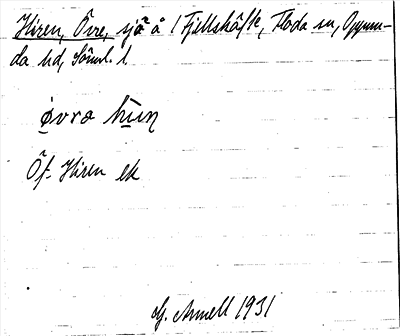 Hiren, Övre, sjö å 1 Fjellskäfte, Floda sn, Oppun-
da hd, Söml. l.
øvrə hi̱rən
Öf. Hiren ek
G. Armell 1931